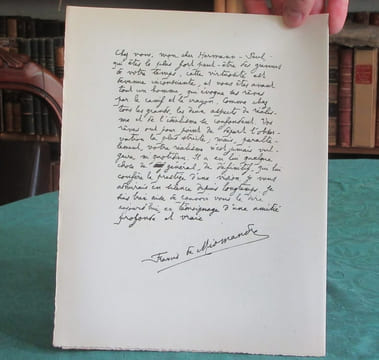 Chez vous, mon cher Hermann-Paul
qu'êtes le plus fort peut-être des graveurs
de votre temps, cette virtuosité est
devenue inconsciente, et vous êtes avant
tout un homme, qui évoque ses rêves
par le canif et le crayon. Comme chez
tous les grands, les deux aspects du réalis-
me et de l'idéalisme se confondent. Vos
rêves ont pour point de départ l'obser-
vation la plus stricte, mais, parallè-
lement, votre réalisme n'est jamais vul-
gaire ni quotidien. Il a en lui quelque
chose de général, de définitif, qui lui
confère le prestige d'une vision. Je vous
admirais en silence depuis longtemps. Je
suis bien aise de pouvoir vous le dire
aujourd'hui, en témoignage d'une amitié
profonde et vraie
Francis de Miomandre